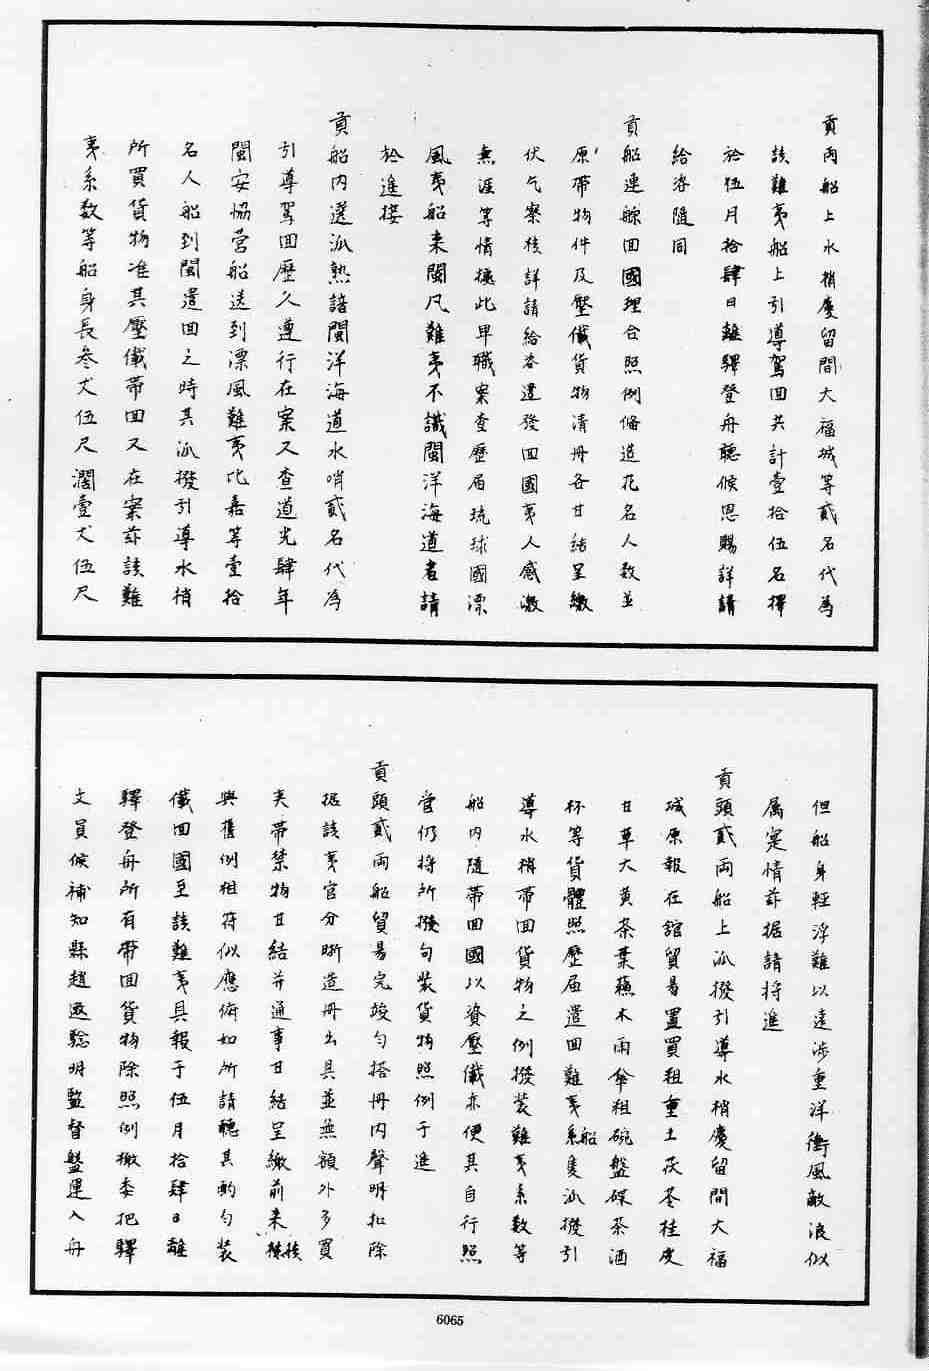 貢兩船上水梢慶留間大福城等貳名代為
該難夷船上引導駕回共計壹拾伍名擇
於伍月拾肆日離驛登舟聽候恩賜詳請
給咨隨同
貢船連䑸回國理合照例俻造花名人数並
原帶物件及壓儎貨物清冊各甘結呈繳
伏乞察核詳請給咨遣發回國夷人感激
無涯等情據此卑職案查歷届琉球國漂
風夷船来閩凡難夷不識閩洋海道者請
於進接
貢船内選派熟諳閩洋海道水哨貳名代為
引導駕回歷久遵行在案又查道光肆年
閩安協營船送到漂風難夷比嘉等壹拾
名人船到閩遣回之時其派撥引導水梢
所買貨物准其壓儎帶回又在案茲該難
夷系数等船身長叁丈伍尺濶壹丈伍尺
但船身輕浮難以遠涉重洋衝風敵浪似
属寔情茲据請将進
貢頭貳兩船上派撥引導水梢慶留間大福
城原報在舘貿易置買粗重土茯苓桂皮
甘草大黄茶葉蘓木雨傘粗碗盤碟茶酒
杯等貨體照歷届遣回難夷船隻派撥引
導水梢帶回貨物之例撥装難夷系数等
船内隨帶回國以資壓儎亦便其自行照
管仍将所撥勻装貨物照例于進
貢頭貳兩船貿易完竣勻搭冊内聲明扣除
据該夷官分晰造冊出具並無額外多買
夹帶禁物甘結并通事甘結呈繳前来核
與舊例相符似應俯如所請聽其酌勻装
儎回國至該難夷具報于伍月拾肆日離
驛登舟所有帶回貨物除照例檄委把驛
文員候補知縣趙遜騐明監督盤運入舟
6065